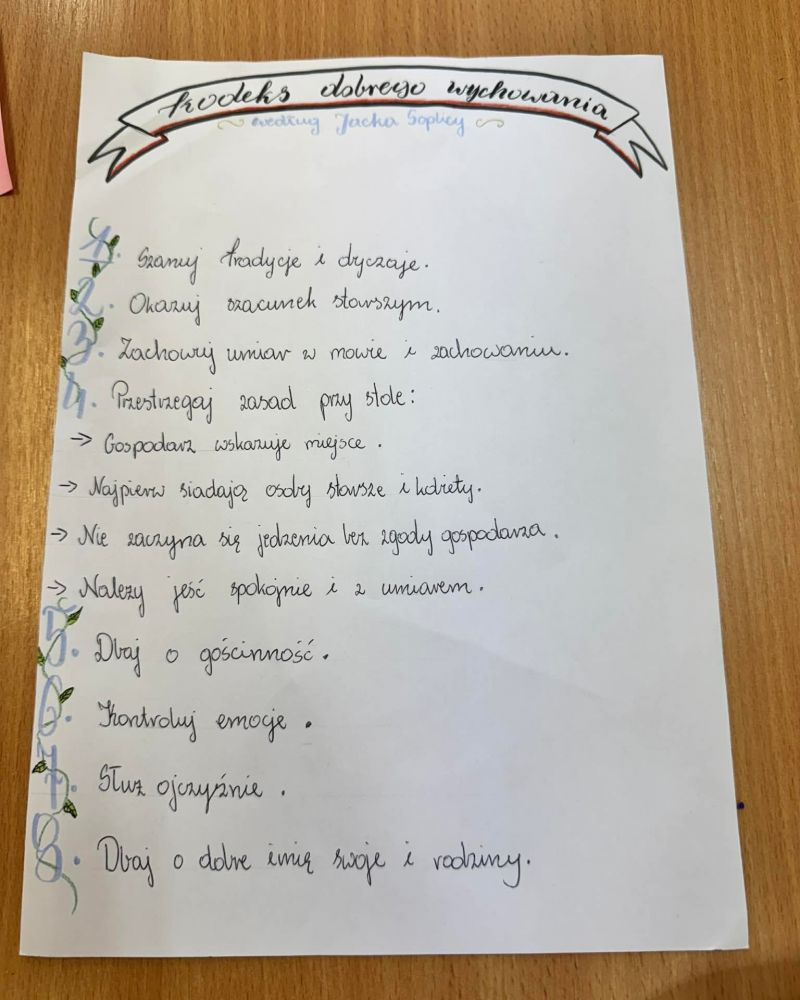 Kodeks dobrego wychowania
według Jacka Soplicy
1. Szanuj tradycje i obyczaje.
2. Okazuj szacunek starszym.
3. Zachowuj umiar w mowie i zachowaniu.
4. Przestrzegaj zasad przy stole:
→ Gospodarz wskazuje miejsce.
→ Najpierw siadają osoby starsze i kobiety.
→ Nie zaczyna się jedzenia bez zgody gospodarza.
→ Należy jeść spokojnie i z umiarem.
5. Dbaj o gościnność.
6. Kontroluj emocje.
7. Służ ojczyźnie.
8. Dbaj o dobre imię swoje i rodziny.